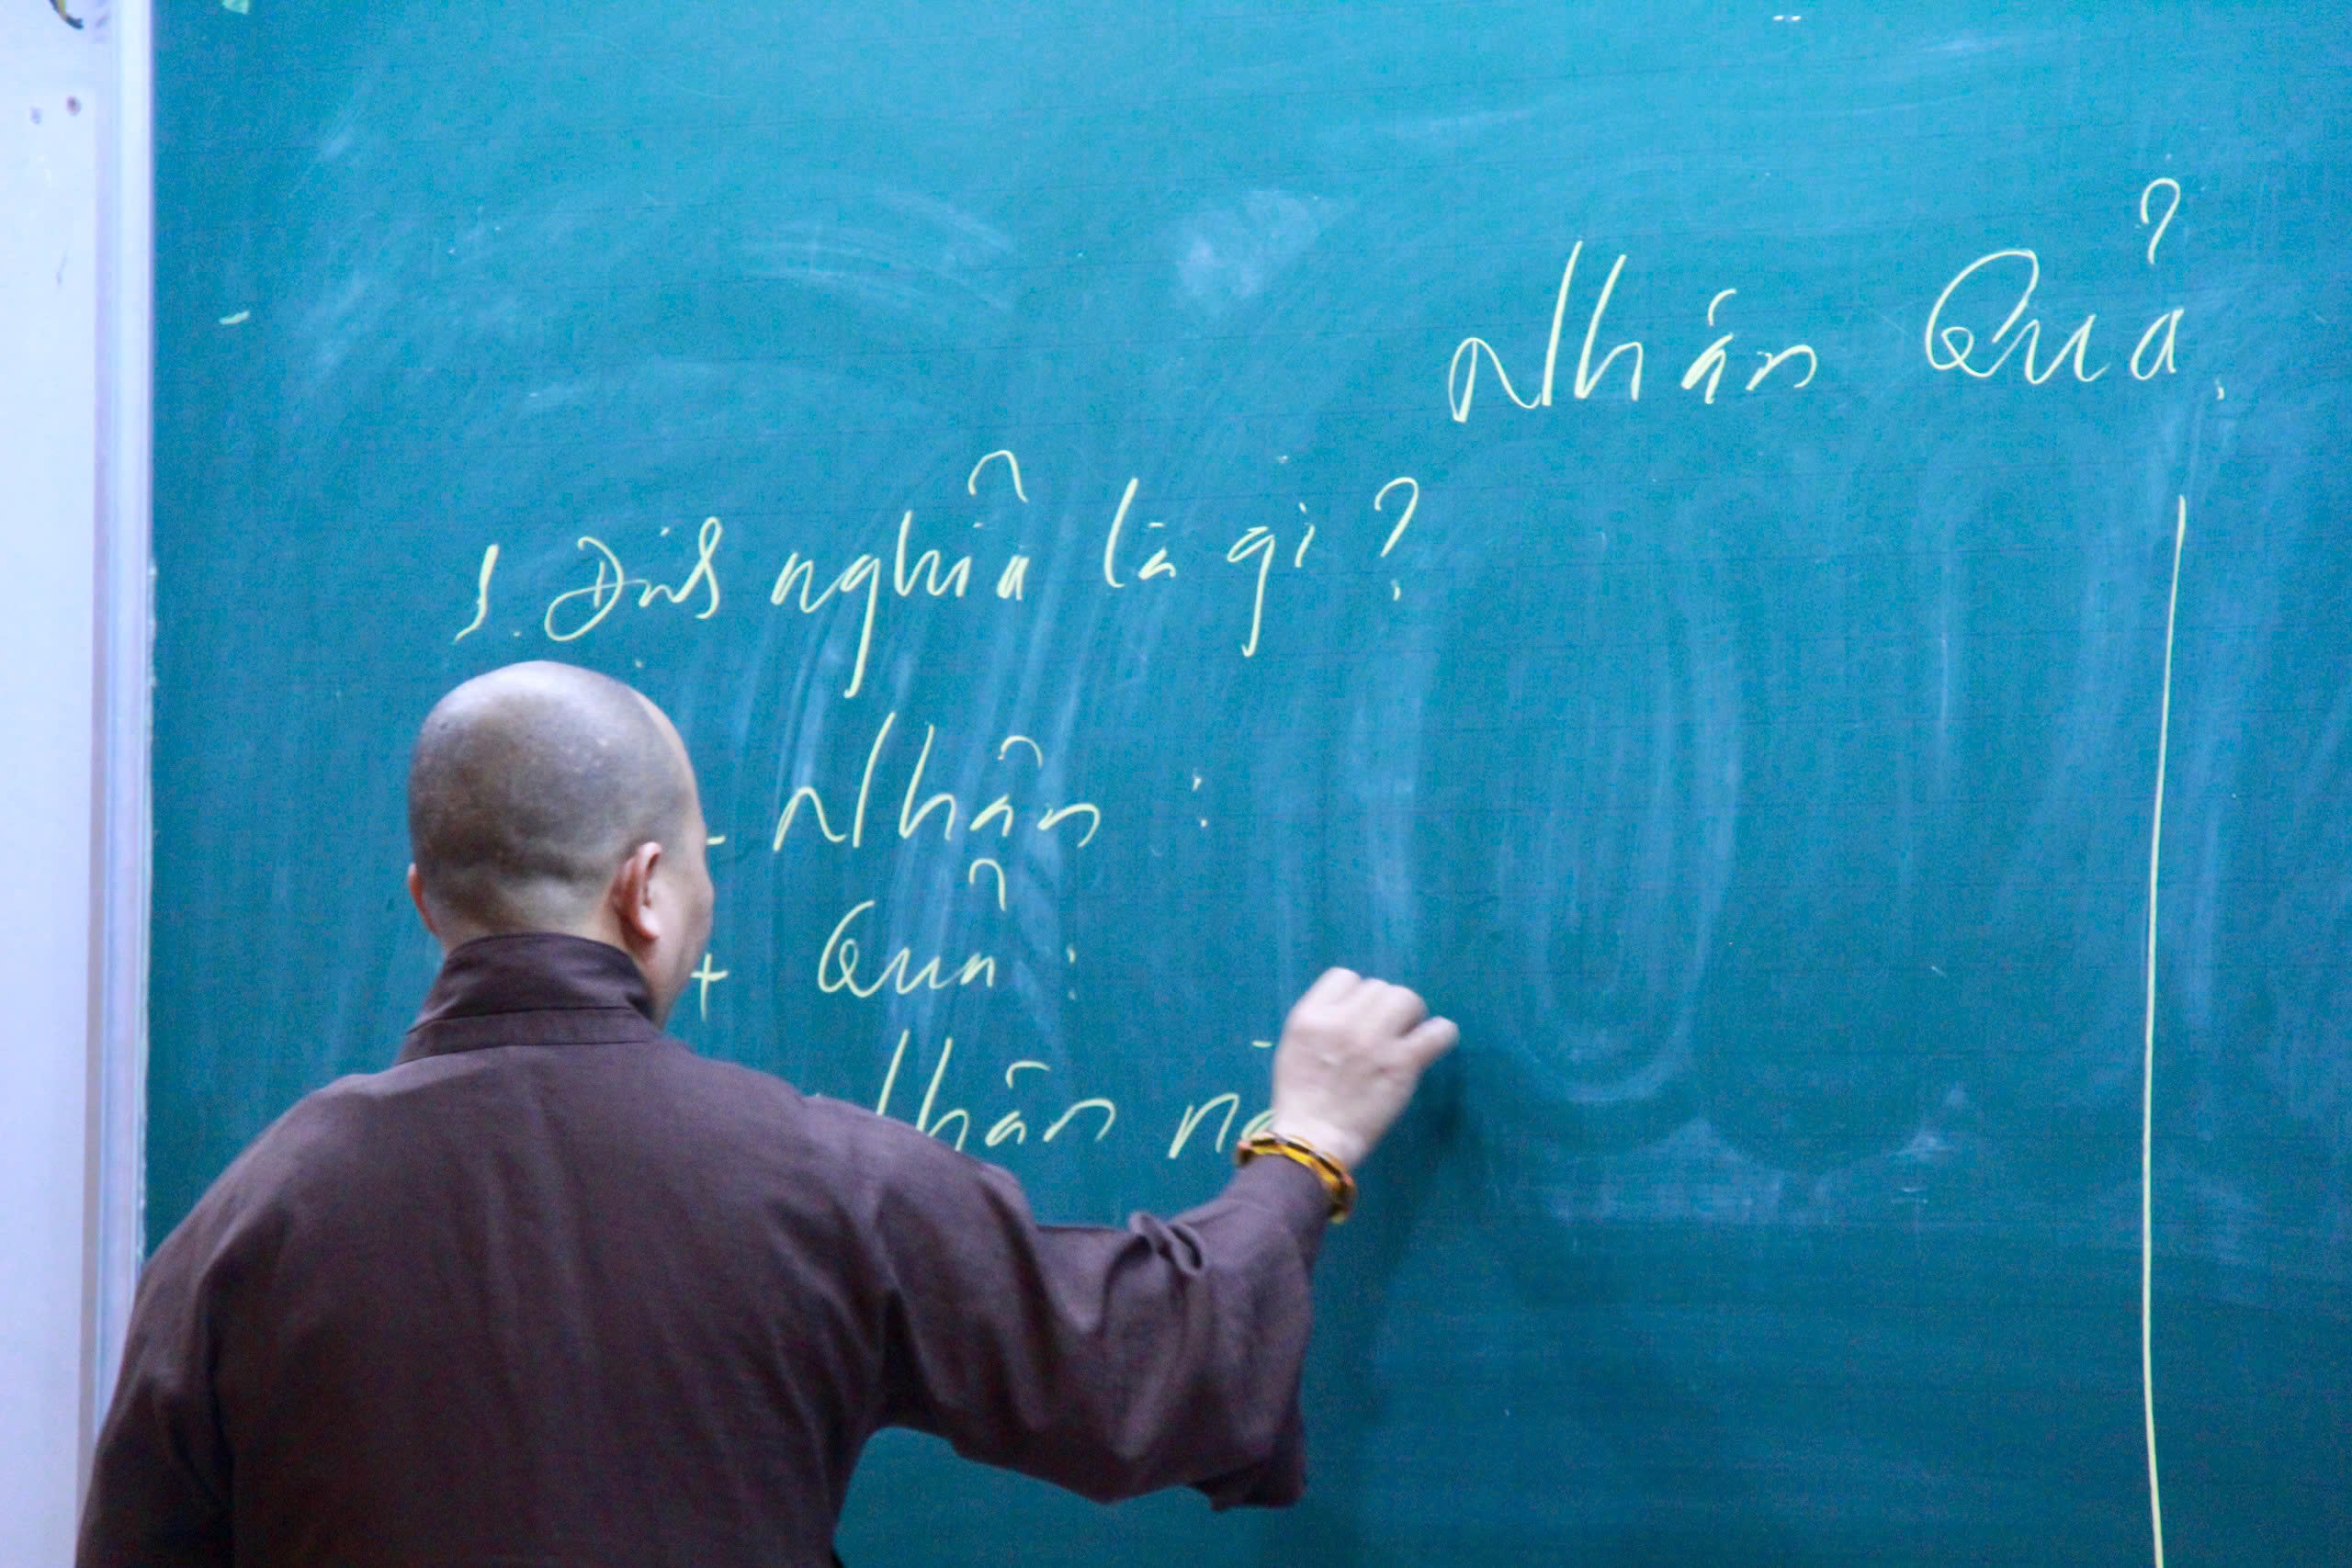 Nhân Quả
1. Định nghĩa là gì?
- Nhân :
+ Quả :
Nhân